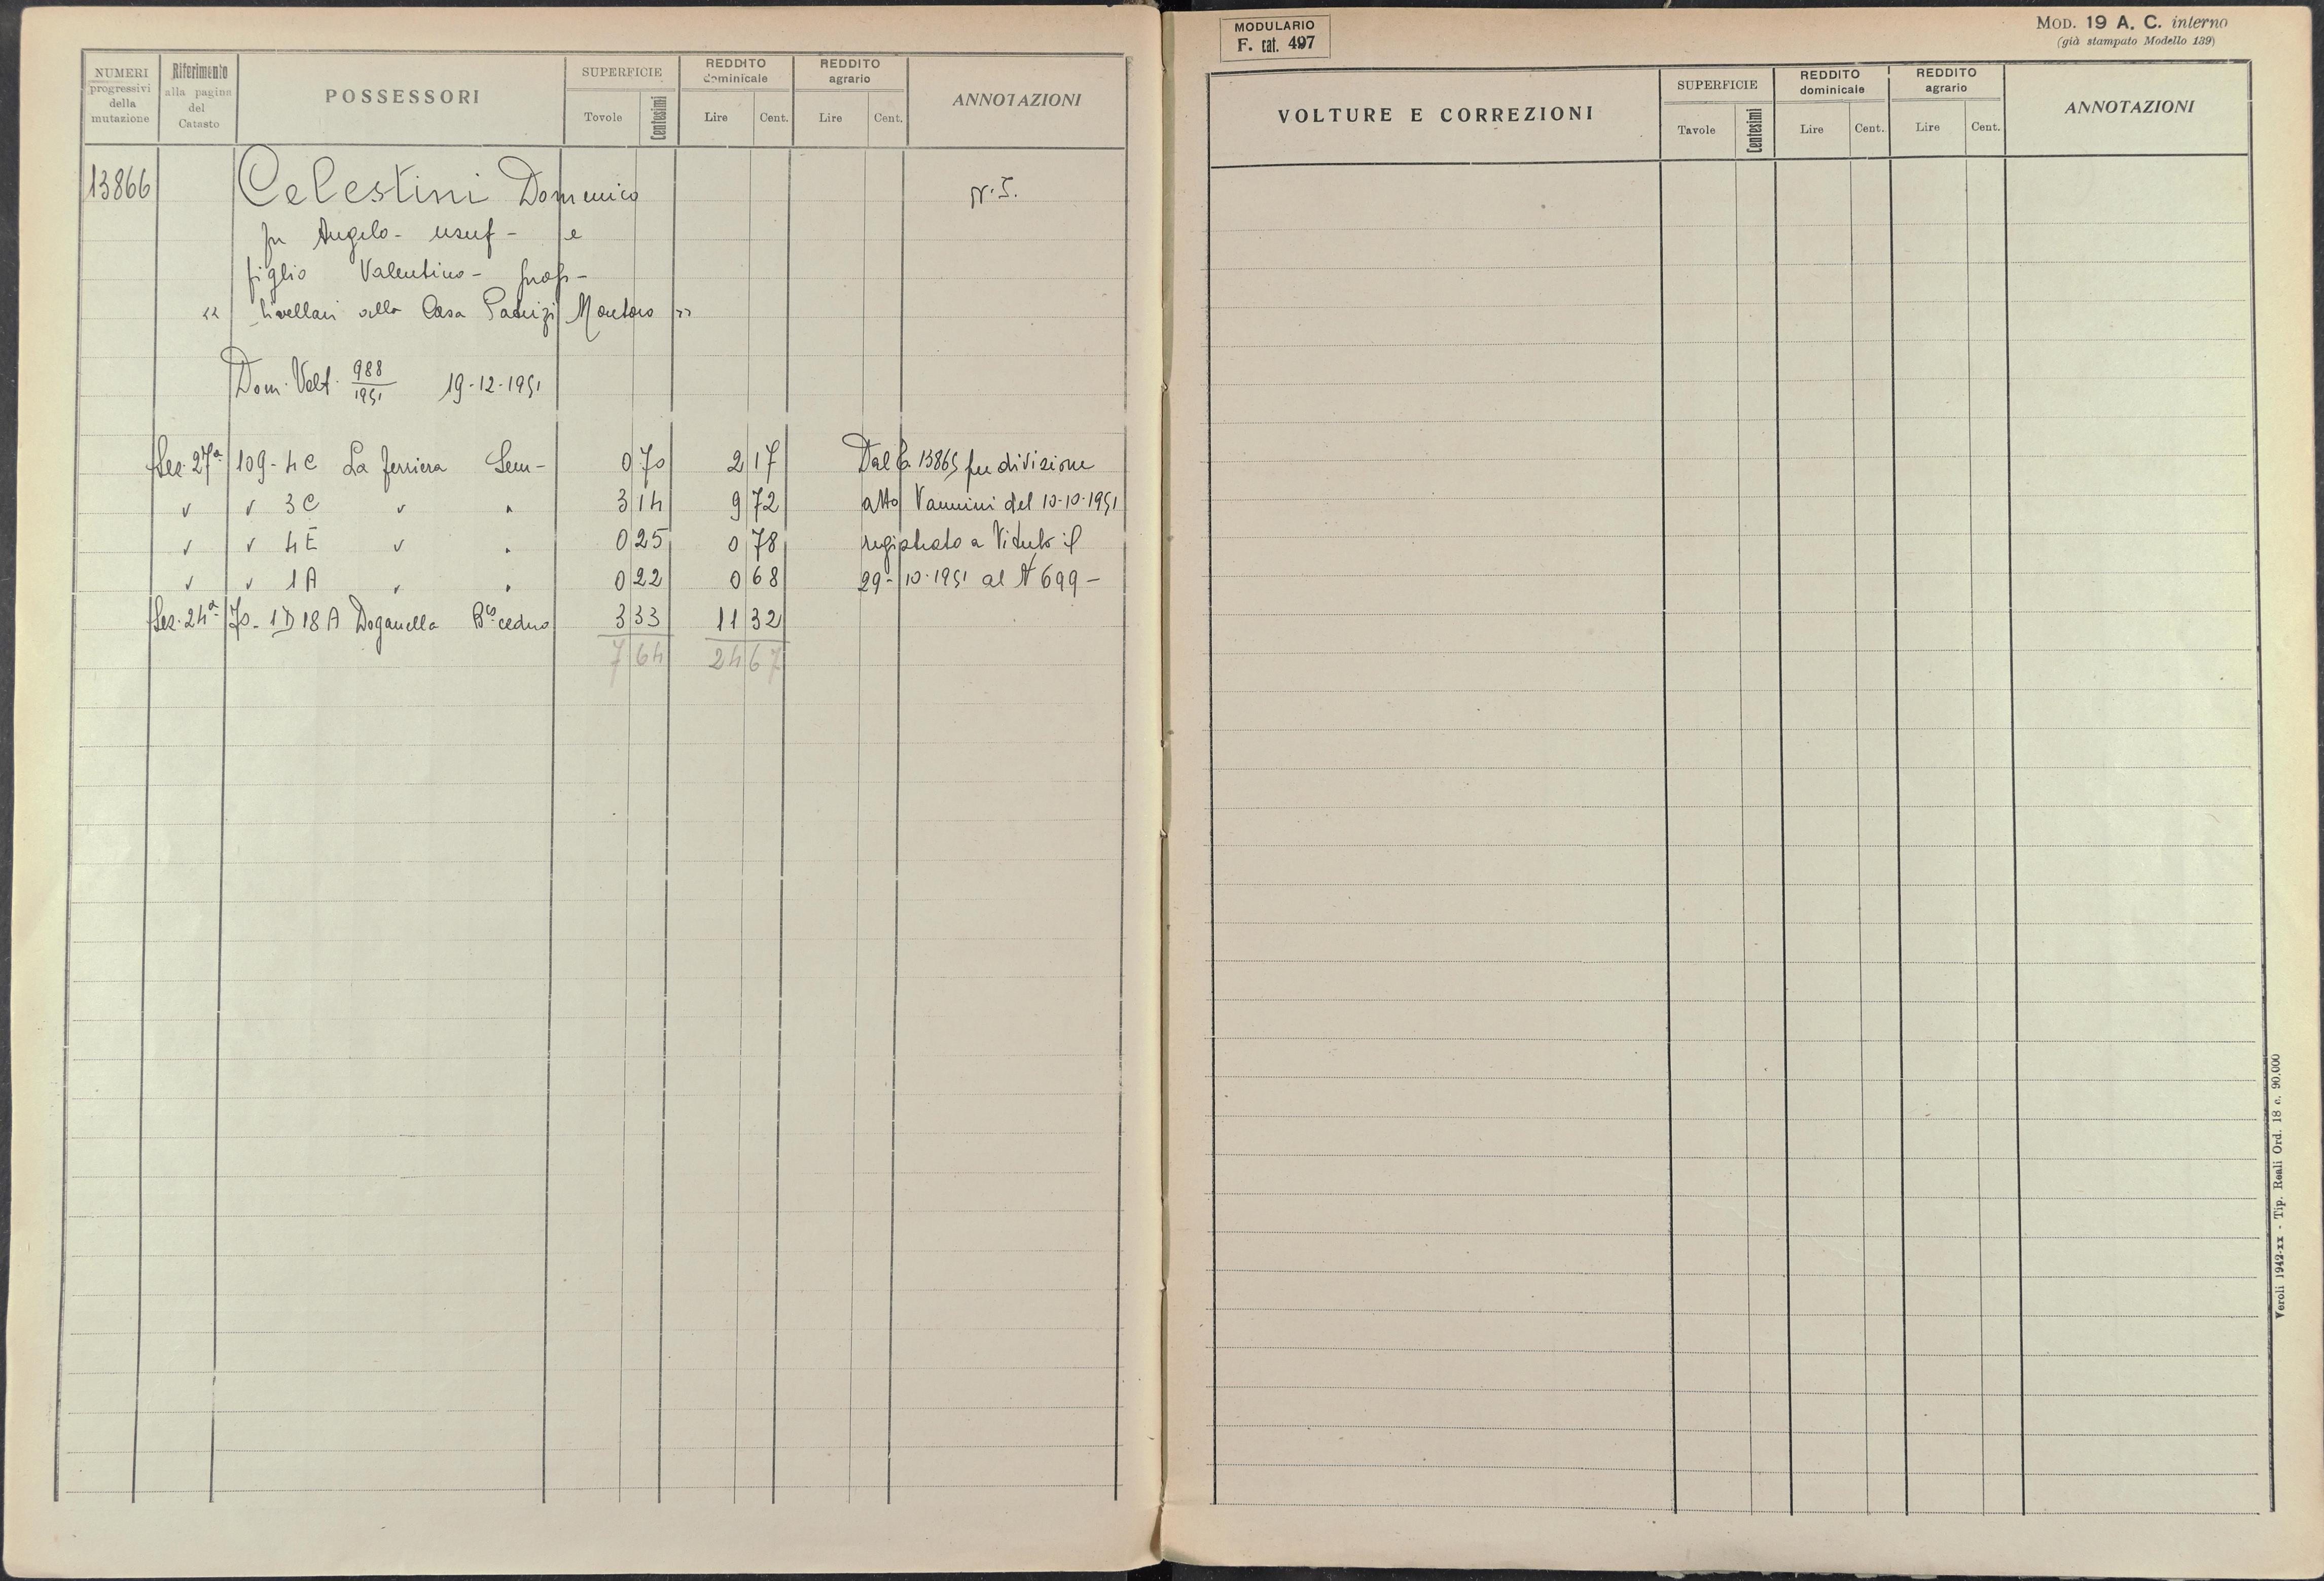 NUMERI progressivi della mutazione
Riferimento alla pagina del Catasto
POSSESSORI
SUPERFICIE
Tovole Centesimi
REDDITO dominicale
Lire Cent.
REDDITO agrario
Lire Cent.
ANNOTAZIONI
13866 Celestini Domenico
fu Angelo - usuf - e
figlio Valentino - prop -
« livellari alla Casa Patrizi Montoro »
Dom. Volt. 988/1951 19-12-1951
Sez. 27ª 109 - 4C La ferriera Sem - 0 70 2 17 Dal 13865 per divisione
" " 3C " " 3 14 9 72 atto Vannini del 10-10-1951
" " 4E " " 0 25 0 78 registrato a il
" " 1A " " 0 22 0 68 29-10-1951 al N 699 -
Sez. 24ª 70 - 1D 18A Doganella B.co ceduo 3 33 11 32
7 64 24 67
MODULARIO
F. cat. 497
MOD. 19 A. C. interno
(già stampato Modello 139)
VOLTURE E CORREZIONI
SUPERFICIE
Tavole Centesimi
REDDITO dominicale
Lire Cent.
REDDITO agrario
Lire Cent.
ANNOTAZIONI
Veroli 1942-XX - Tip. Reali Ord. 18 c. 90.000